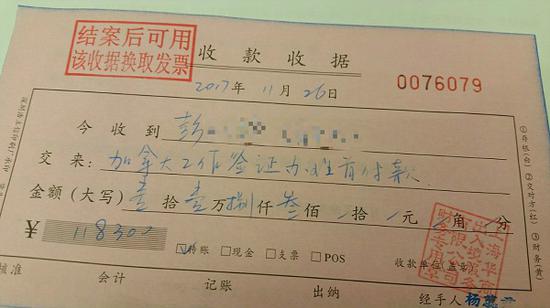 结案后可用
该收据换取发票
收款收据
0076079
2017年 11月 26日
今收到 彭
交来：加拿大工作签证办理首付款
金额（大写）壹拾壹万捌仟叁佰 拾 元 角 分
¥ 118300
转账 现金 支票 POS 收款单位（盖章）
核准 会计 记账 出纳 经手人
①存根（白） ②交对方（红） ③财务（黄）